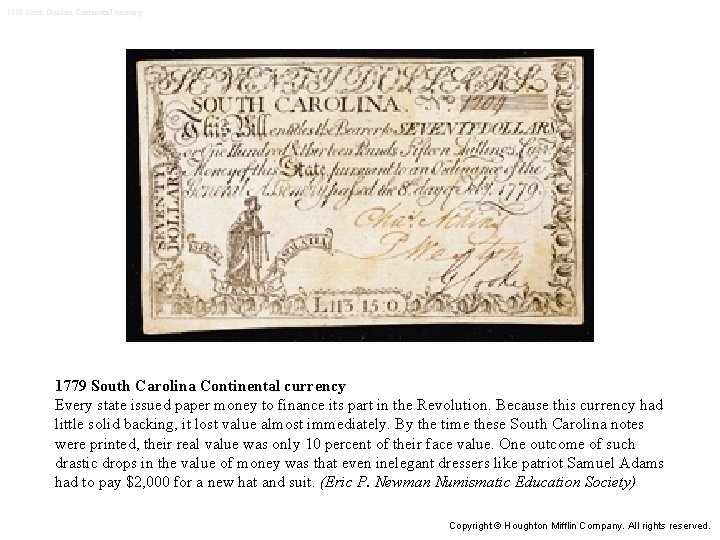 1779 South Carolina Continental currency
SEVENTY DOLLARS
SOUTH CAROLINA. No
This Bill entitles the Bearer to SEVENTY DOLLARS
or One Hundred & thirteen Pounds Fifteen Shillings
Money of this State pursuant to an Ordinance of the
General Assembly passed the 8 day of 1779.
SEVENTY
DOLLARS
L113:15:0
1779 South Carolina Continental currency
Every state issued paper money to finance its part in the Revolution. Because this currency had
little solid backing, it lost value almost immediately. By the time these South Carolina notes
were printed, their real value was only 10 percent of their face value. One outcome of such
drastic drops in the value of money was that even inelegant dressers like patriot Samuel Adams
had to pay $2,000 for a new hat and suit. (Eric P. Newman Numismatic Education Society)
Copyright © Houghton Mifflin Company. All rights reserved.